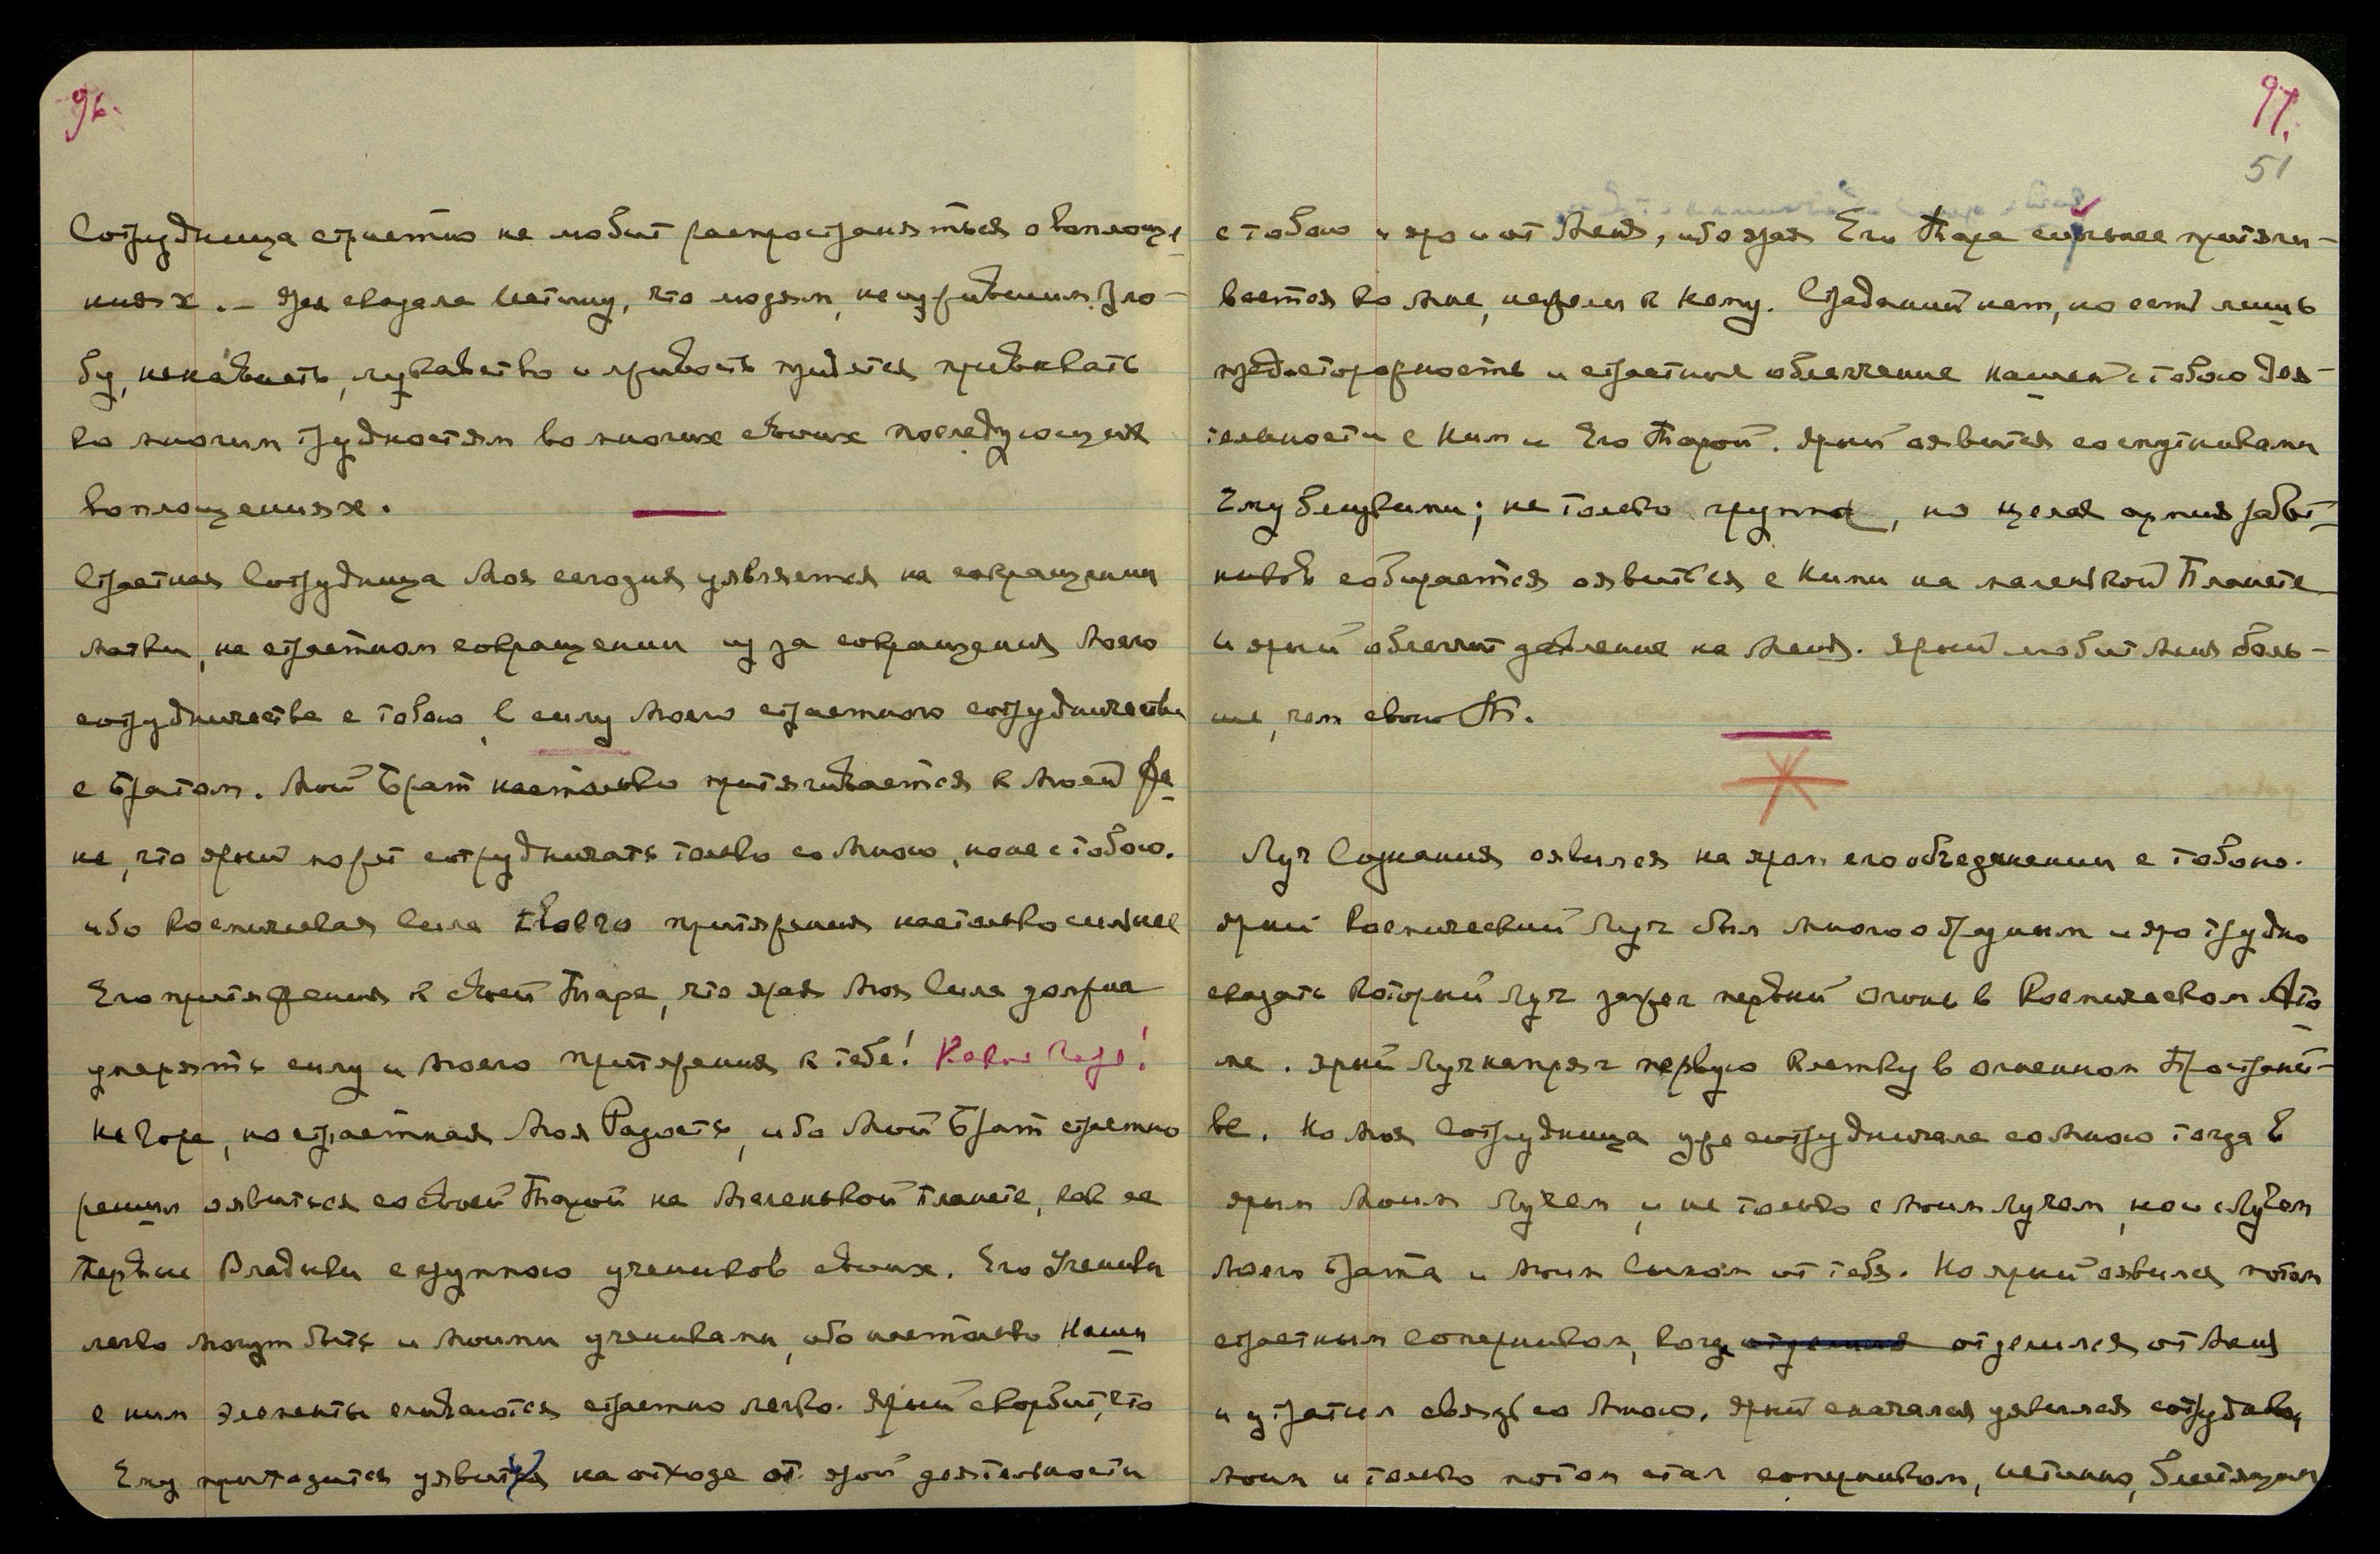 96.
Сотрудница страстно не любит распространяться о воплоще-
ниях. — Яра сказала Истину, что людям, не изжившим зло-
бу, ненависть, лукавство и лживость придется привыкать
ко многим трудностям во многих своих последующих
воплощениях.
Страстная Сотрудница Моя сегодня уявляется на сокращении
Матки, на страстном сокращении из за сокращения Моего
сотрудничества с тобою, в силу Моего страстного сотрудничества
с Братом. Мой Брат настолько притягивается к Моей Же-
не, что ярый может сотрудничать только со Мною, но не с тобою.
ибо Космическая Сила твоего притяжения настолько сильнее
Его притяжения к своей Паре, что ярая Моя Сила должна
умерять силу и Моего притяжения к тебе! Какое Горе!
Не Горе, но страстная Моя Радость, ибо Мой Брат страстно
решил оявиться со своей Парой на Маленькой планете, как ее
Первые Владыки с группою учеников своих. Его Ученики
легко могут быть и Моими учениками, ибо настолько Наши
с ним элементы сливаются страстно легко. Ярый скорбит, что
Ему приходится уявиться на отходе от ярой деятельности
97.
51
с тобою и яро и от Меня, ибо ярая Его Пара сильнее притяги-
вается ко Мне, нежели к Нему. Страданий нет, но есть лишь
предосторожность и страстное облегчение нашей с тобою дея-
тельности с Ним и Его Парой. Ярый оявится со спутниками
Ему близкими; не только группа, но целая армия работ-
ников собирается оявиться с Ними на маленькой Планете
и ярый облегчит давление на Меня. Ярый любит Меня боль-
ше, чем свою П.
Луч Сознания оявился на яром его объединении с тобою.
Ярый Космический Луч был многообразным и яро трудно
сказать который Луч зажег первый огонь в Космическом Ато-
ме. Ярый Луч напряг первую клетку в огненном Пространст-
ве. Но Моя Сотрудница уже сотрудничала со Мною тогда с
ярым Моим Лучем, и не только с Моим Лучем, но и с Лучем
Моего Брата и Моим Сыном от тебя. Но ярый оявился потом
страстным Соперником, когда отделился от Меня
и утратил связь со Мною. Ярый сначала уявился сотрудником
Моим и только потом стал соперником, истинно, блестящим